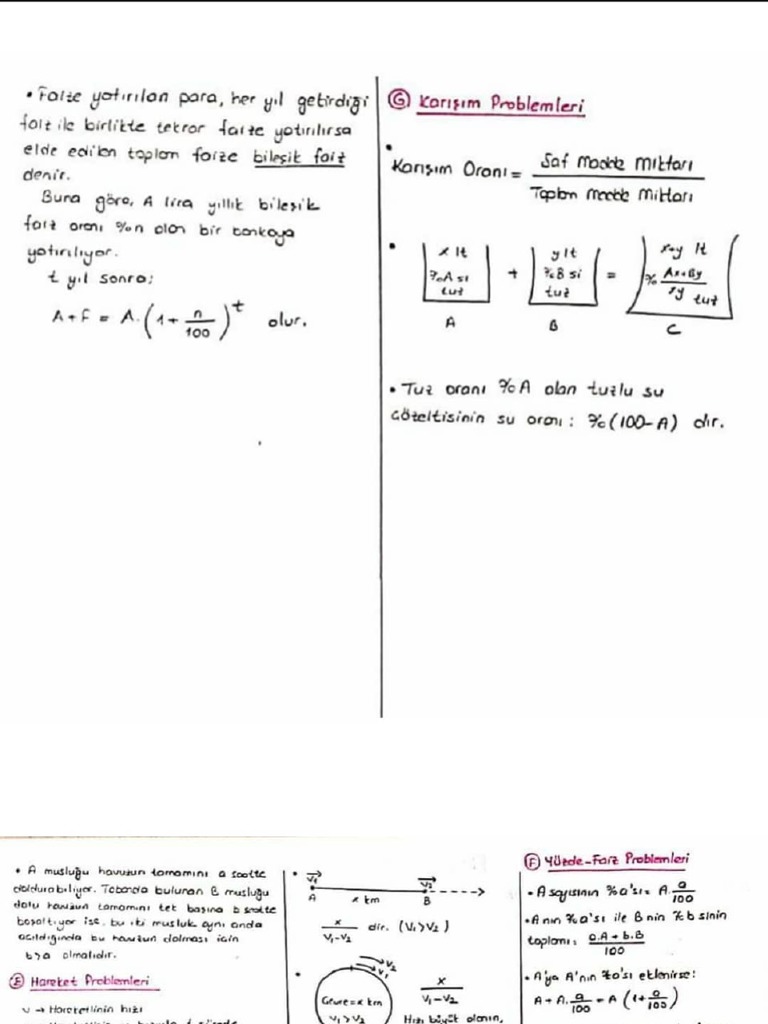 • Faize yatırılan para, her yıl getirdiği
faiz ile birlikte tekrar faize yatırılırsa
elde edilen toplam faize bileşik faiz
denir.
Buna göre, A lira yıllık bileşik
faiz oranı %n olan bir bankaya
yatırılıyor.
t yıl sonra;
A+F = A.(1+ n/100)^t olur.
Ⓖ Karışım Problemleri
• Karışım Oranı = Saf Madde Miktarı / Toplam Madde Miktarı
• x lt %A sı tuz + y lt %B si tuz = x+y lt % Ax+By / xy tuz
A B C
• Tuz oranı %A olan tuzlu su
çözeltisinin su oranı: %(100-A) dır.
• A musluğu havuzun tamamını a saatte
doldurabiliyor. Tabanda bulunan B musluğu
dolu havuzun tamamını tek başına b saatte
boşaltıyor ise, bu iki musluk aynı anda
açıldığında bu havuzun dolması için
b>a olmalıdır.
Ⓔ Hareket Problemleri
V → Hareketlinin hızı
• V1 V2
A x km B
x / V1-V2 dir. (V1>V2)
• V2
V1
Çevre=x km
V1>V2
x / V1-V2
Hızı büyük olanın,
Ⓕ Yüzde-Faiz Problemleri
• A sayısının %a'sı= A. a/100
• A nın %a'sı ile B nin %b sinin
toplamı: a.A+b.B / 100
• A'ya A'nın %a'sı eklenirse:
A+A. a/100 = A (1+ a/100)